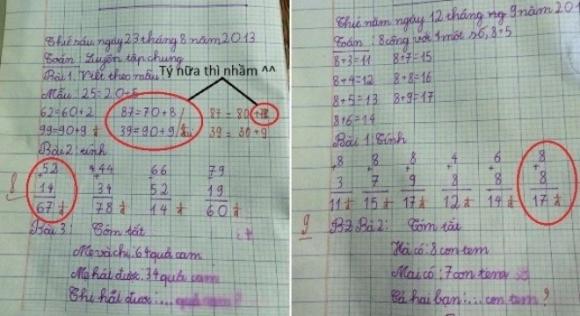 Thứ sáu ngày 23 tháng 8 năm 2013
Toán : Luyện tập chung
Bài 1. Viết theo mẫu
Tý nữa thì nhầm ^^
Mẫu : 25=20+5
62=60+2 87=70+8 87 = 80
99=90+9 39=90+9 39 = 30+9
Bài 2: tính
52 +44 66 79
14 34 52 19
67 78 14 60
8
Bài 3: Tóm tắt
Mẹ và chị: 64 quả cam
Mẹ hái được: 34 quả cam
Chị hái được: ... quả cam ?
Thứ năm ngày 12 tháng 9 năm 201
Toán : 8 cộng với 1 một số, 8+5
8+3=11 8+7=15
8+4=12 8+8=16
8+5=13 8+9=17
8+6=14
Bài 1: Tính
+8 +8 +8 +4 +6 +8
3 7 9 8 8 8
11 15 17 12 14 17
9
B2 Bài 2: Tóm tắt
Hà có: 8 con tem
Mai có: 7 con tem
Cả hai bạn.... con tem ?